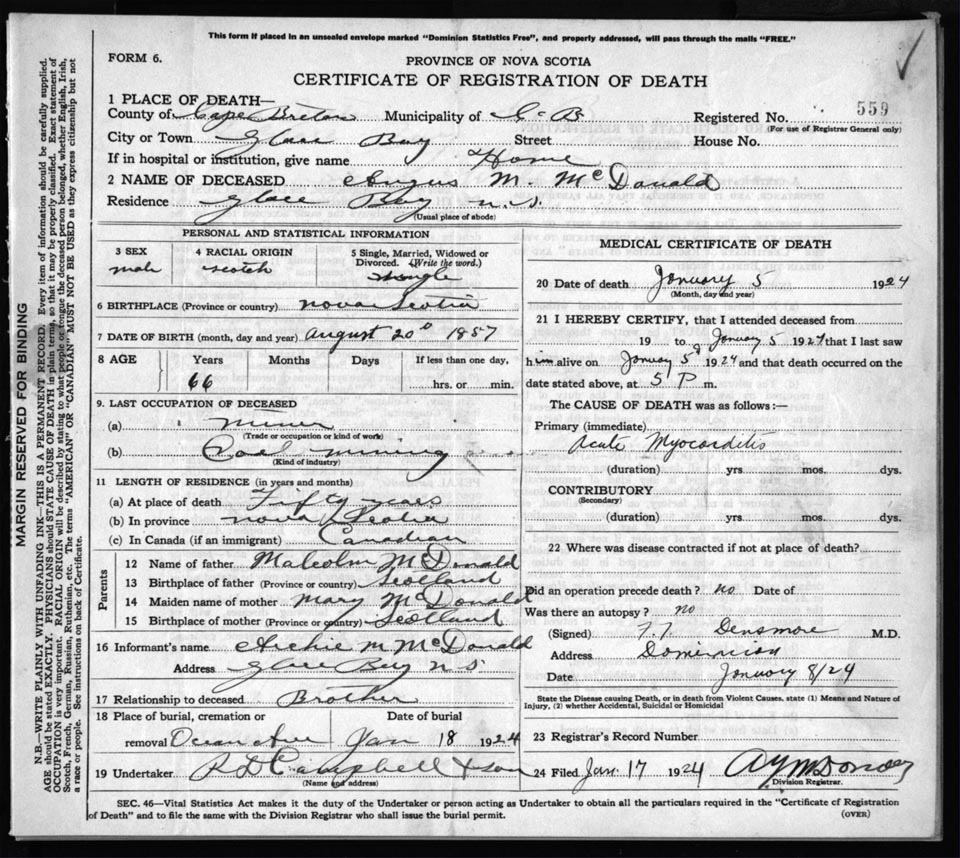 This form if placed in an unsealed envelope marked "Dominion Statistics Free", and properly addressed, will pass through the mails "FREE."
FORM 6.
PROVINCE OF NOVA SCOTIA
CERTIFICATE OF REGISTRATION OF DEATH
1 PLACE OF DEATH—
County of Cape Breton Municipality of C.B. Registered No. 559
(For use of Registrar General only)
City or Town Glace Bay Street House No.
If in hospital or institution, give name Home
2 NAME OF DECEASED Angus M. McDonald
Residence Glace Bay N.S.
(Usual place of abode)
PERSONAL AND STATISTICAL INFORMATION
3 SEX 4 RACIAL ORIGIN 5 Single, Married, Widowed or Divorced. (Write the word.)
male scotch Single
6 BIRTHPLACE (Province or country) Nova Scotia
7 DATE OF BIRTH (month, day and year) August 20th 1857
8 AGE Years Months Days If less than one day,
66 hrs. or min.
9. LAST OCCUPATION OF DECEASED
(a) Miner
(Trade or occupation or kind of work)
(b) Coal mining
(Kind of industry)
11 LENGTH OF RESIDENCE (in years and months)
(a) At place of death Fifty years
(b) In province Nova Scotia
(c) In Canada (if an immigrant) Canadian
Parents
12 Name of father Malcolm McDonald
13 Birthplace of father (Province or country) Scotland
14 Maiden name of mother Mary McDonald
15 Birthplace of mother (Province or country) Scotland
16 Informant's name Archie M McDonald
Address Glace Bay N S
17 Relationship to deceased Brother
18 Place of burial, cremation or Date of burial
removal Ocean Ave Jan 18 1924
19 Undertaker R D Campbell & son
(Name and address)
MEDICAL CERTIFICATE OF DEATH
20 Date of death January 5 1924
(Month, day and year)
21 I HEREBY CERTIFY, that I attended deceased from
19 to January 5 1924 that I last saw
him alive on January 5 1924 and that death occurred on the
date stated above, at 5 P m.
The CAUSE OF DEATH was as follows:—
Primary (immediate)
Acute Myocarditis
(duration) yrs. mos. dys.
CONTRIBUTORY
(Secondary)
(duration) yrs. mos. dys.
22 Where was disease contracted if not at place of death?
Did an operation precede death? no Date of
Was there an autopsy? no
(Signed) Densmore M.D.
Address Dominion
Date January 8/24
State the Disease causing Death, or in death from Violent Causes, state (1) Means and Nature of
Injury, (2) whether Accidental, Suicidal or Homicidal
23 Registrar's Record Number
24 Filed Jan. 17 1924
Division Registrar.
SEC. 46—Vital Statistics Act makes it the duty of the Undertaker or person acting as Undertaker to obtain all the particulars required in the "Certificate of Registration
of Death" and to file the same with the Division Registrar who shall issue the burial permit.
(OVER)
MARGIN RESERVED FOR BINDING
N.B.—WRITE PLAINLY WITH UNFADING INK—THIS IS A PERMANENT RECORD. Every item of information should be carefully supplied.
AGE should be stated EXACTLY. PHYSICIANS should STATE CAUSE OF DEATH in plain terms, so that it may be properly classified. Exact statement of
OCCUPATION is very important. RACIAL ORIGIN will be described by stating to what people or tongue the deceased person belonged, whether English, Irish,
Scotch, French, German, Russian, Ruthenian, etc. The terms "AMERICAN" OR "CANADIAN" MUST NOT BE USED as they express citizenship but not
a race or people. See instructions on back of Certificate.